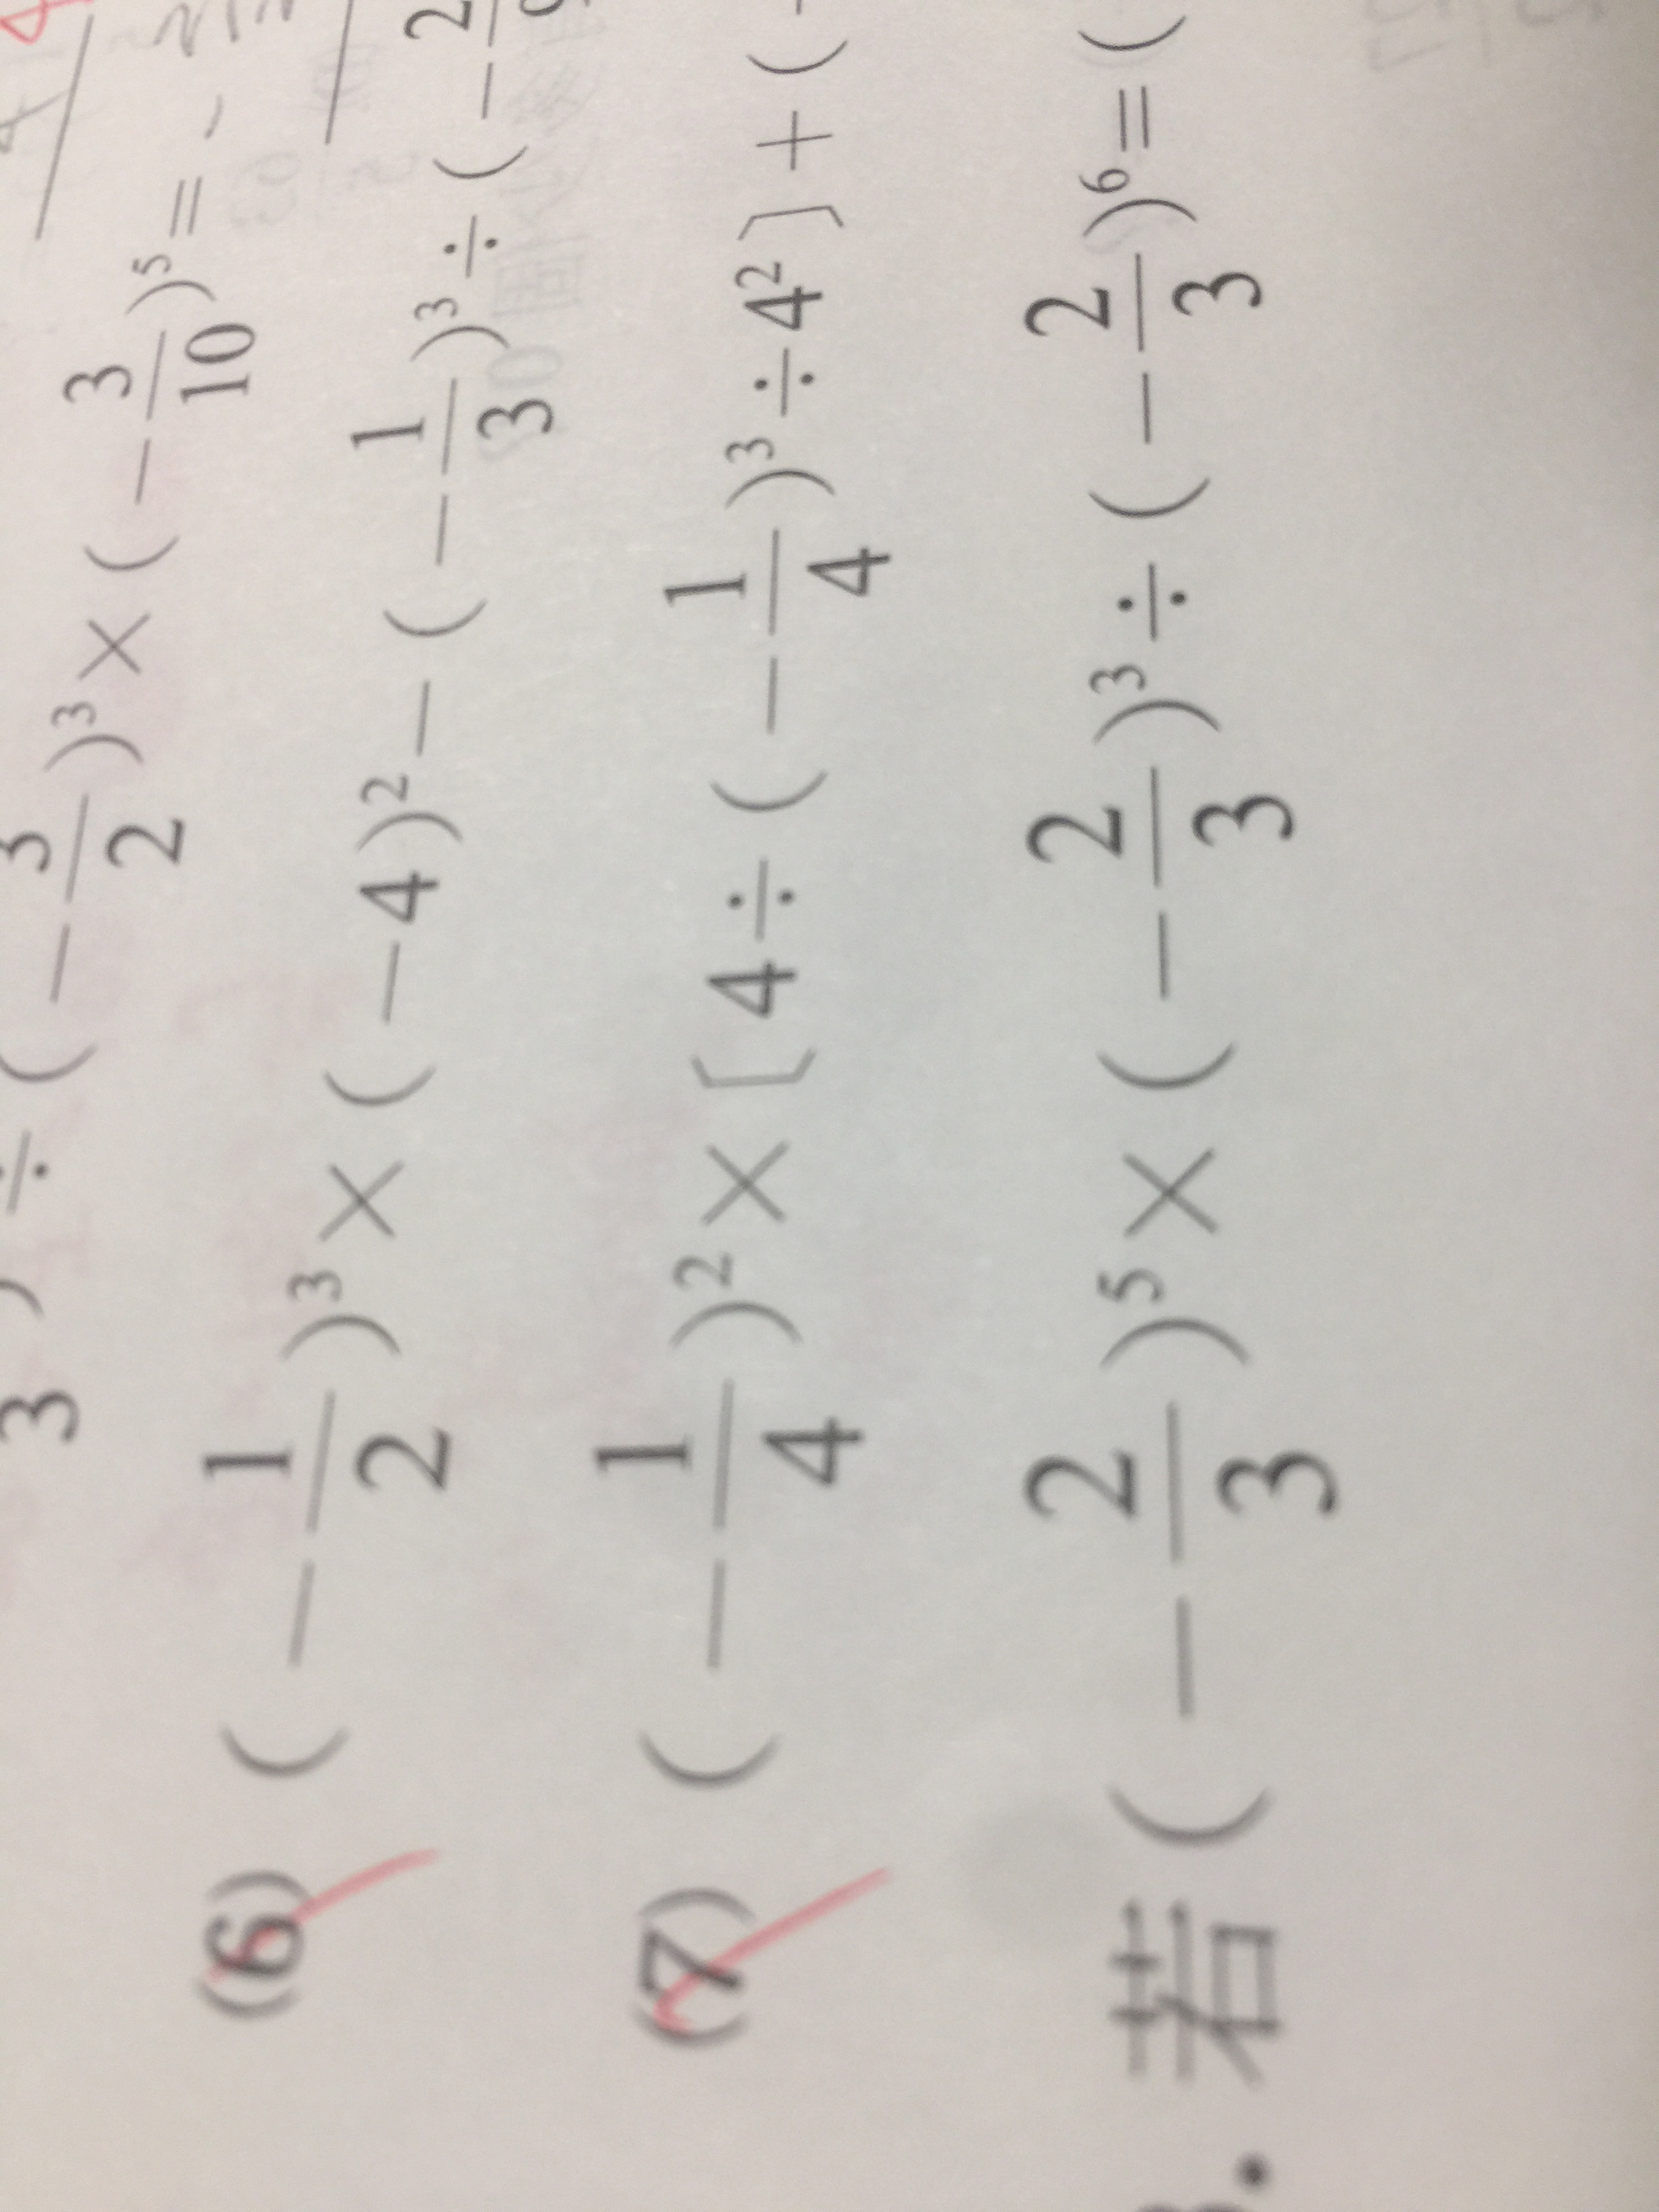 3 ) ÷ (-3/2)³×(-3/10)⁵= -
(6) (-1/2)³×(-4)²-(-1/3)³÷(-2
(7) (-1/4)²×[4÷(-1/4)³÷4²]+(-
. 若(-2/3)⁵×(-2/3)³÷(-2/3)⁶=(